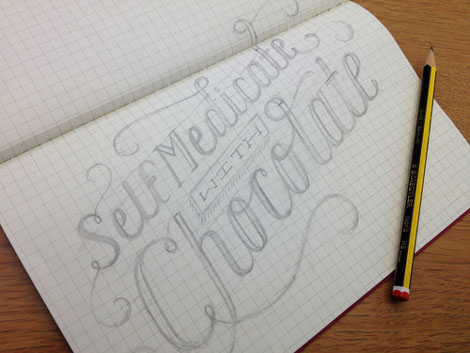 Self Medicate
WITH
Chocolate
STAEDTLER